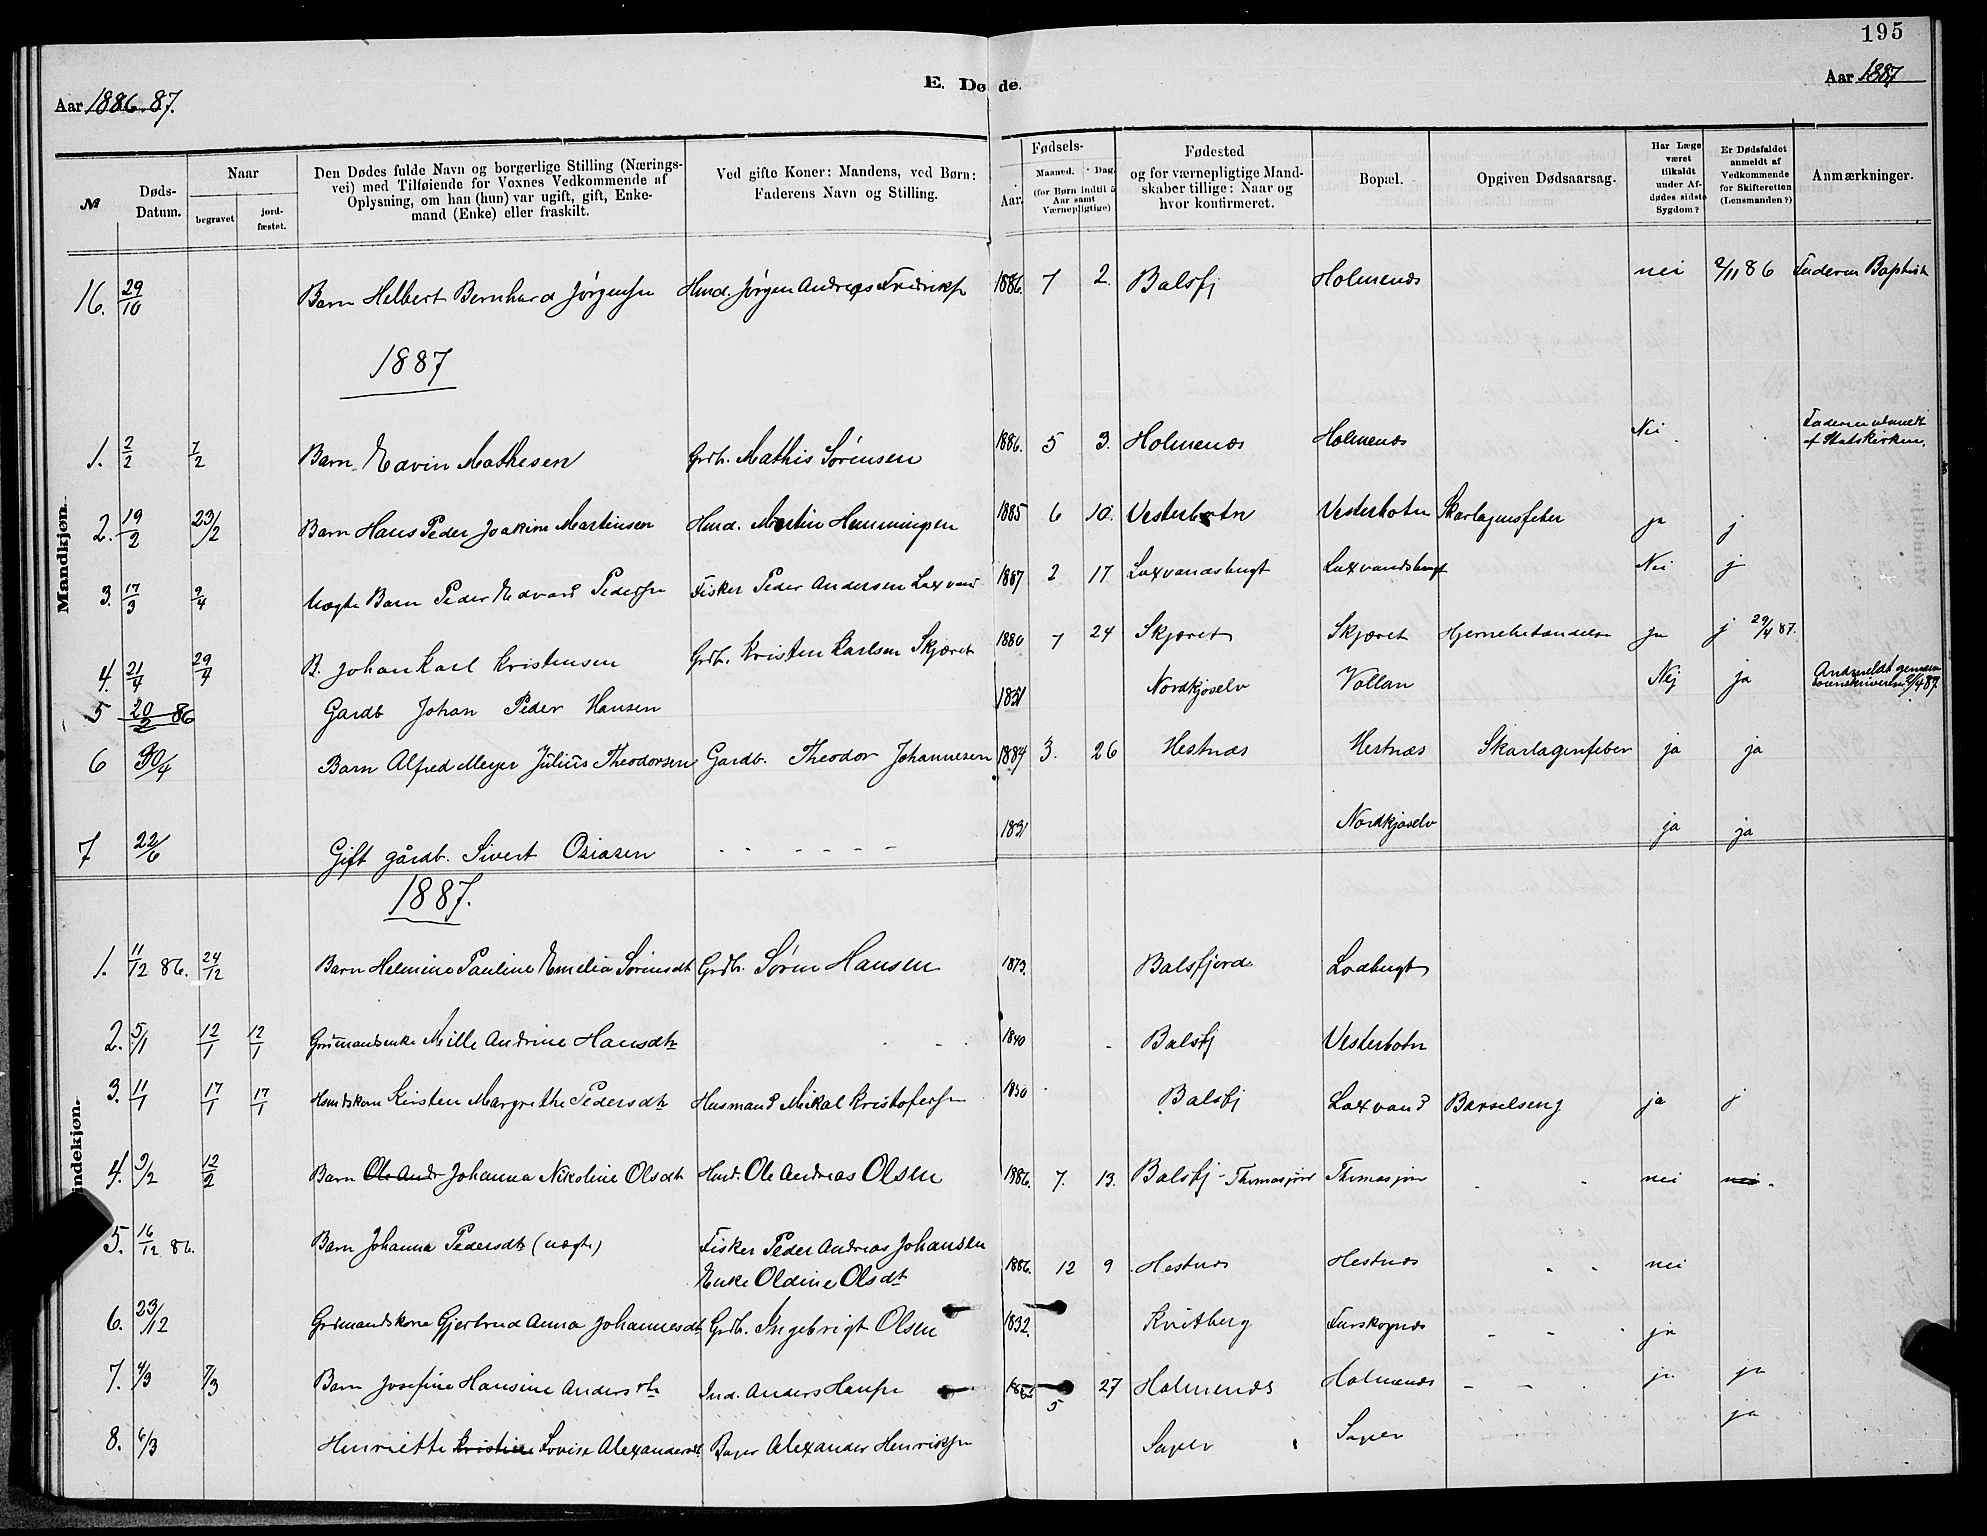 195
E. Døde.
Aar 1886-87.
Aar 1887
№
Døds-Datum.
Naar
begravet
jord-fæstet.
Den Dødes fulde Navn og borgerlige Stilling (Nærings-
vei) med Tilføiende for Voxnes Vedkommende af
Oplysning, om han (hun) var ugift, gift, Enke-
mand (Enke) eller fraskilt.
Ved gifte Koner: Mandens, ved Børn:
Faderens Navn og Stilling.
Fødsels-
Aar.
Maaned.
Dag.
(for Børn indtil 5
Aar samt
Værnepligtige)
Fødested
og for værnepligtige Mand-
skaber tillige: Naar og
hvor konfirmeret.
Bopæl.
Opgiven Dødsaarsag.
Har Læge
været
tilkaldt
under Af-
dødes sidste
Sygdom?
Er Dødsfaldet
anmeldt af
Vedkommende
for Skifteretten
(Lensmanden?)
Anmærkninger.
16. 29/10 Barn Helbert Bernhard Jørgensen Husmd. Jørgen Andreas Fredriks. 1886. 7 2. Balsfj Holmenæs nei 2/11 86 Faderen Baptist
1887
Mandkjøn.
1. 2/2 7/2 Barn Edvin Mathesen Grdb. Mathis Sørensen 1886. 5 3. Holmenæs Holmenæs Nei Faderen utmeldt
af Statskirken.
2. 19/2 23/2 Barn Hans Peder Joakim Martinsen Husmd. Martin Henningsen 1885 6 10. Vesterbotn Vesterbotn Skarlagensfeber ja j
3. 17/3 9/4 Uægte Barn Peder Edvard Pedersen Fisker Peder Andersen Laxvand 1887 2 17 Laxvandsbugt Laxvandsbugt Nei j
4. 21/4 29/4 B. Johan Karl Kristensen Grdb. Kristen Karlsen Skjæret 1880 7 24 Skjæret Skjæret Hjernebetændelse ja j 29/4 87.
5 20/2 86 Gardb Johan Peder Hansen Nordkjoselv Vollan Nej ja
6 30/4 Barn Alfred Meyer Julius Theodorsen Gardb. Theodor Johannesen 1884 3. 26 Hestnæs Hestnæs Skarlagenfeber ja ja
7 22/6 Gift gårdb. Sivert Osiasen - - - - - - 1831 Nordkjoselv ja ja
1887.
Kvindekjøn.
1. 11/12 86. 24/12 Barn Helmine Pauline Emelia Sørensdt Grdb. Søren Hansen 1873. Balsfjord Lodbugt
2. 5/1 12/1 12/1 Grdmandsenke Mille Andrine Hansdt 1840 Balsfj Vesterbotn
3. 11/1 17/1 17/1 Husmdskone Kirsten Margrethe Pedersdt Husmand Mikal Kristofersen 1850 Balsfj Laxvand Barselseng ja j
4. 3/2 12/2 Barn Ole Andr Johanna Nikoline Olsdt Husmd. Ole Andreas Olsen 1886. 7. 13. Balsfj - Thomasjord Thomasjord nei nei.
5. 16/12 86. Barn Johanna Pedersdt (uægte) Fisker Peder Andreas Johansen
Enke Oldine Olsdt 1886. 12 9 Hestnæs Hestnæs nei
6. 23/12 Grdmandskone Gjertrud Anna Johannesdt Grdb. Ingebrigt Olsen 1832. Kvitberg ja
7. 4/3 7/3 Barn Josefine Hansine Andersdt Ind. Anders Hansen 5 27 Holmenæs Holmenæs ja ja
8. 6/3 Henriette Kristine Lovise Alexandersdt. Alexander Henriksen ja